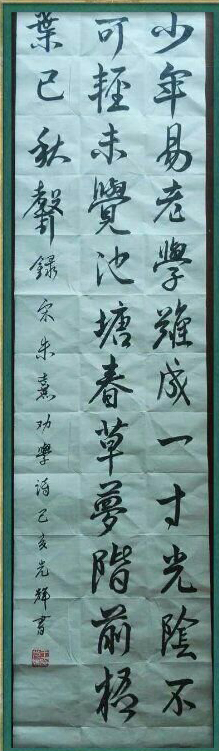 少年易老學難成一寸光陰不
可輕未覺池塘春草夢階前梧
葉已秋聲錄宋朱熹勸學詩己亥光輝書